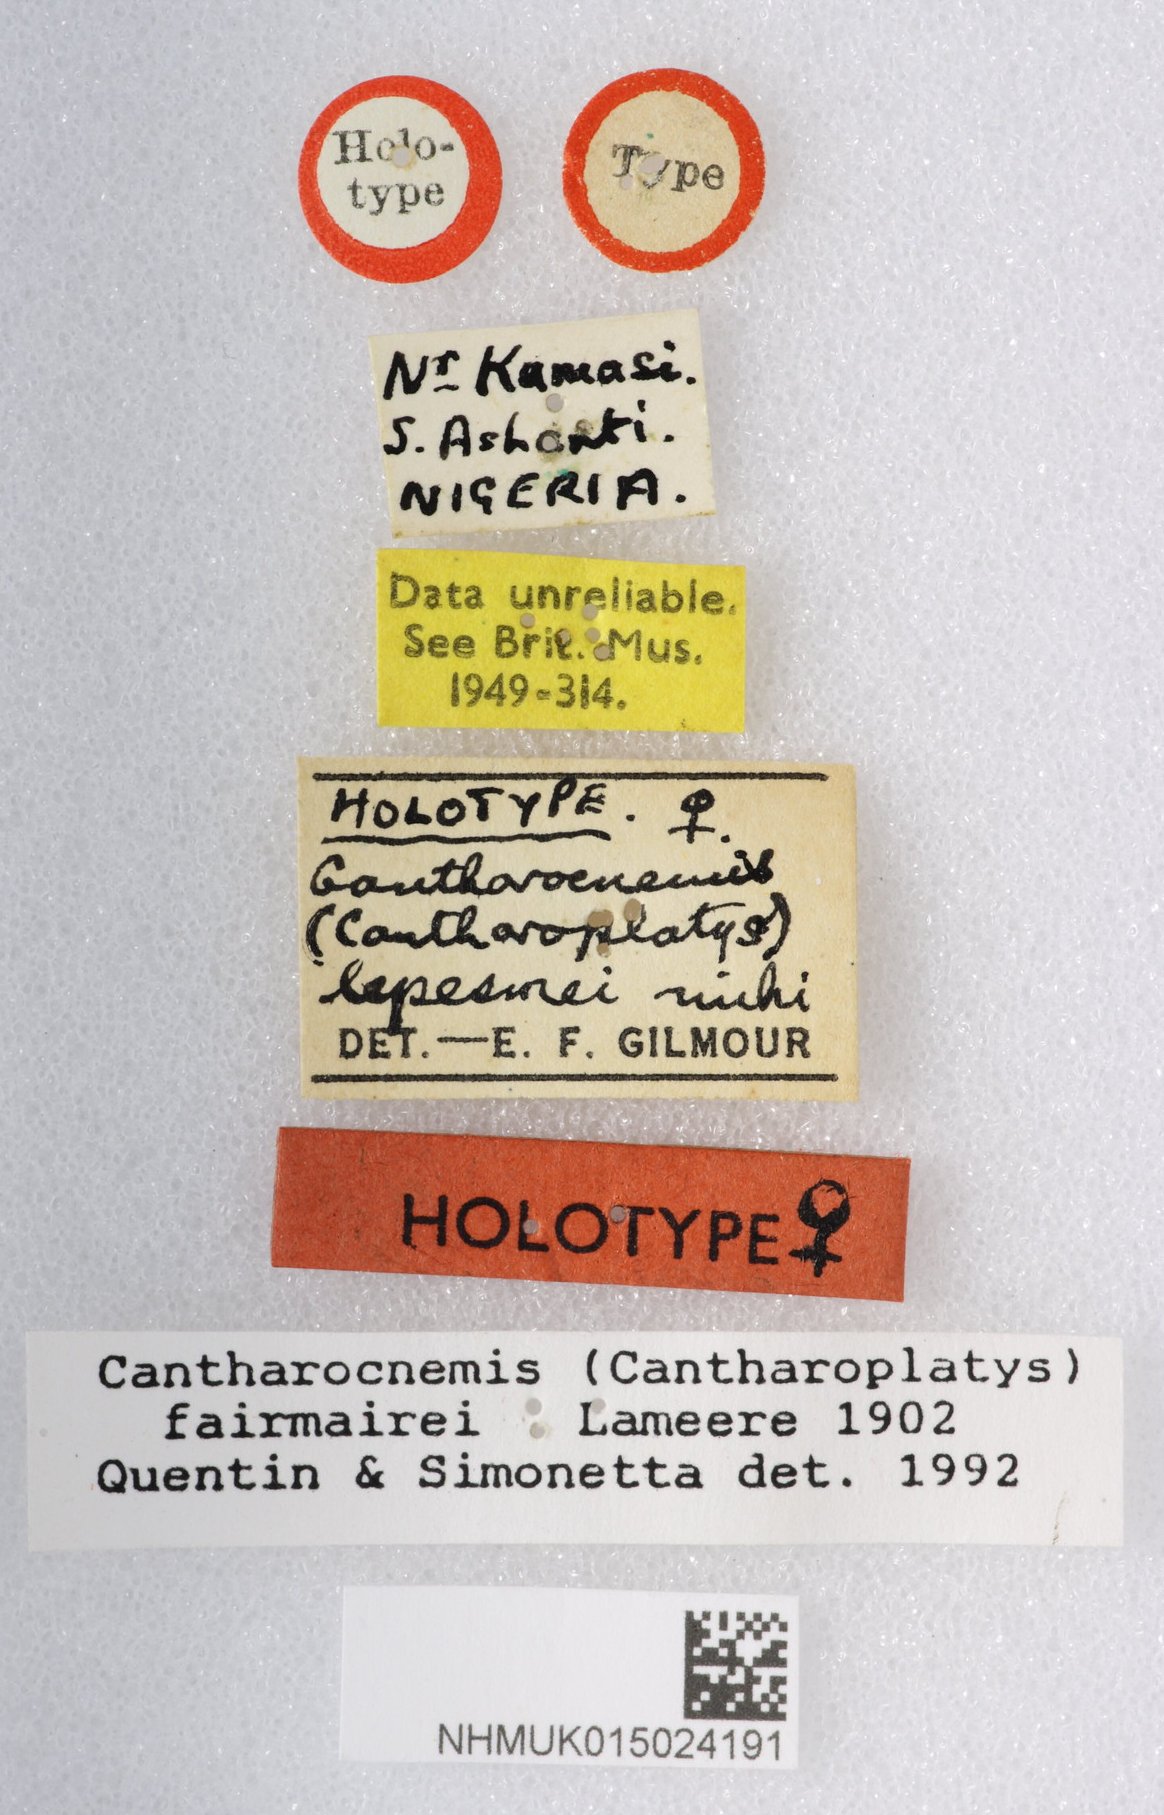 Holo-
type
Type
Nr Kumasi.
S. Ashanti.
NIGERIA.
Data unreliable.
See Brit. Mus.
1949-314.
HOLOTYPE. ♀.
Cantharocnemis
(Cantharoplatys)
lepesmei mihi
DET.—E. F. GILMOUR
HOLOTYPE♀
Cantharocnemis (Cantharoplatys)
fairmairei Lameere 1902
Quentin & Simonetta det. 1992
NHMUK015024191